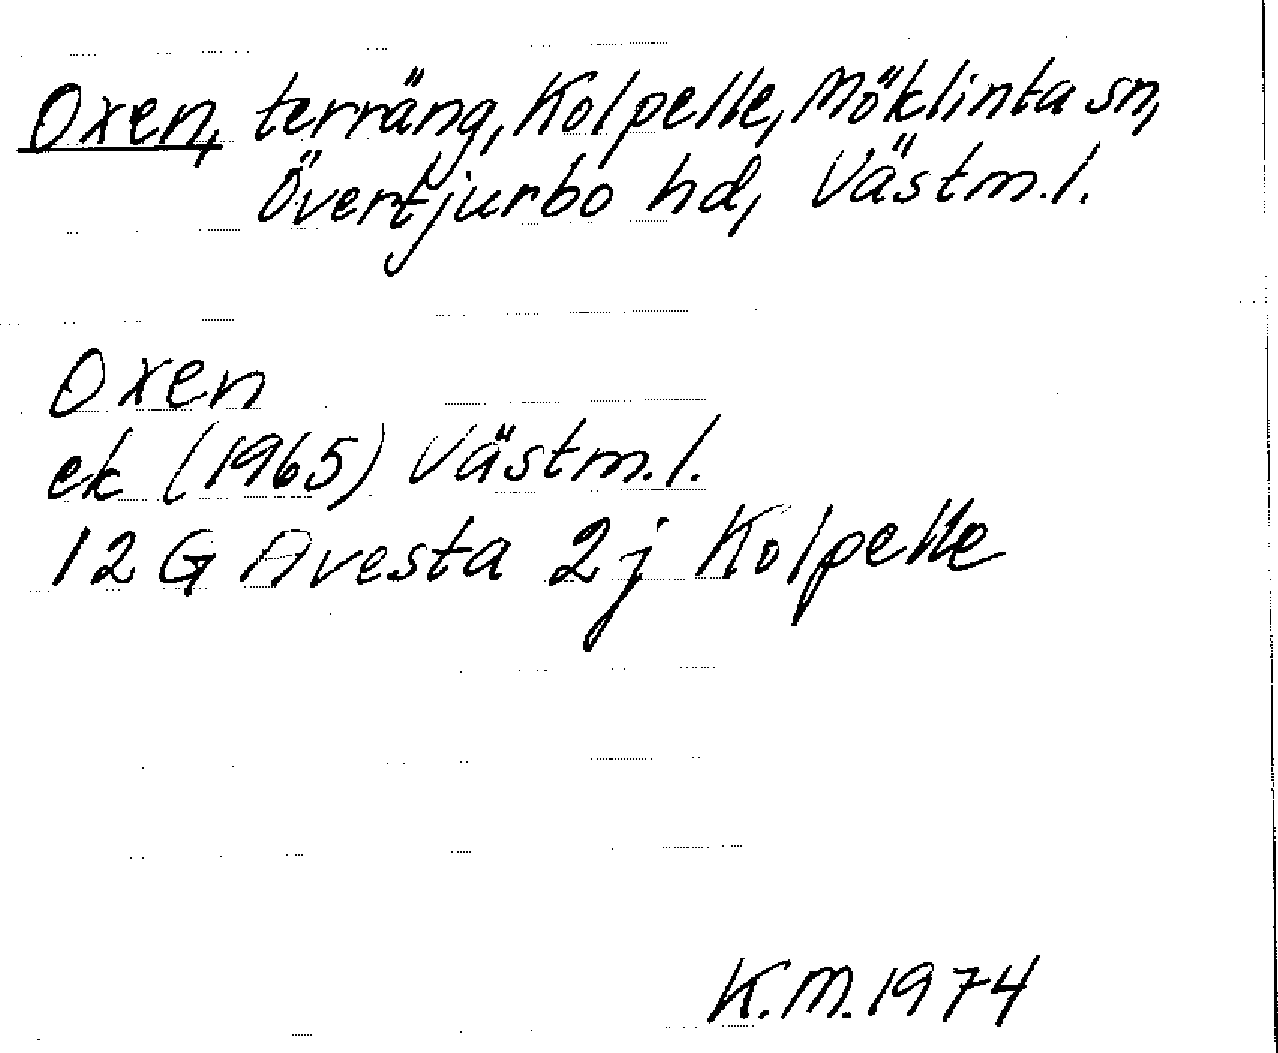 Oxen, terräng, Kolpelle, Möklinta sn,
Övertjurbo hd, Västm.l.
Oxen
ek (1965) Västm.l.
12 G Avesta 2 j Kolpelle
K.M. 1974